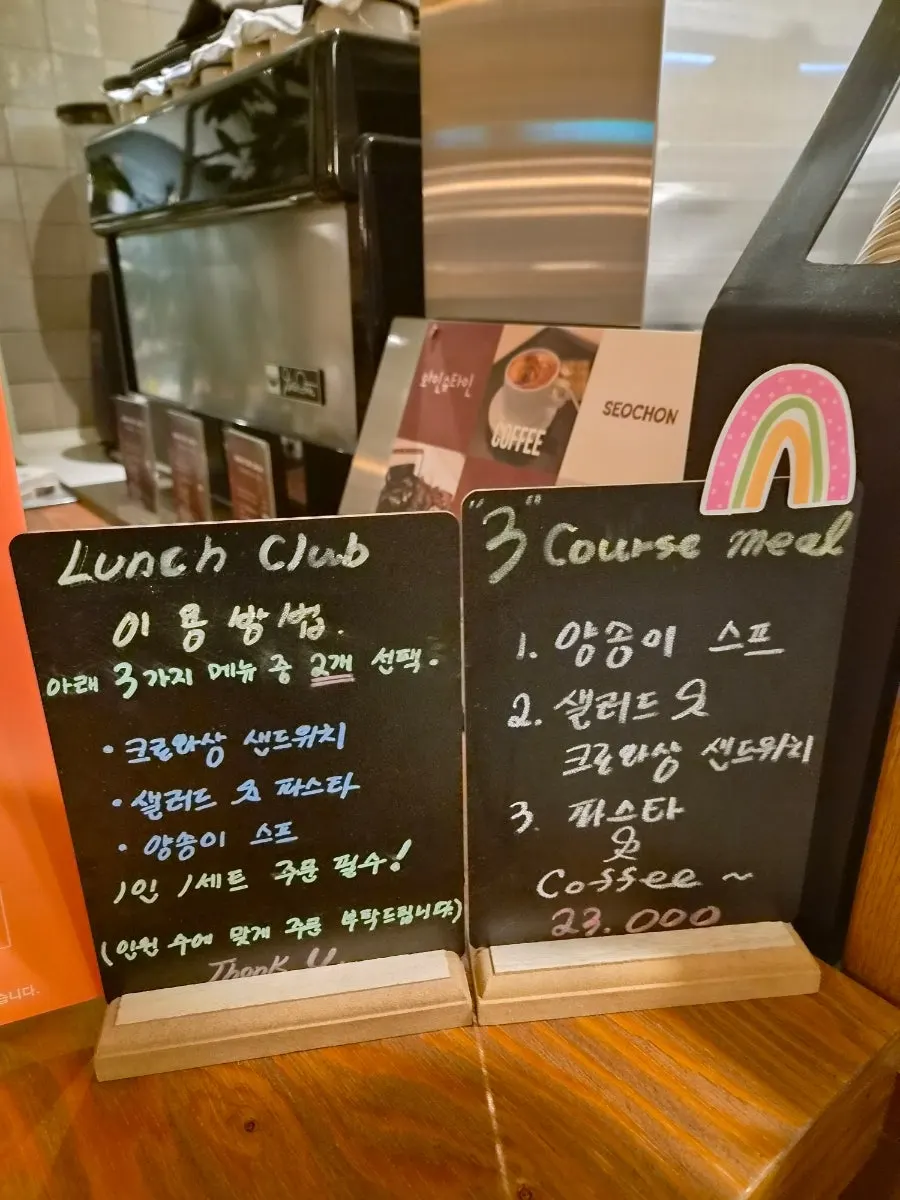 와인슬타인
COFFEE
SEOCHON
Lunch Club
이용 방법.
아래 3가지 메뉴 중 2개 선택.
· 크로와상 샌드위치
· 샐러드 & 파스타
· 양송이 스프
1인 1세트 주문 필수!
(인원 수에 맞게 주문 부탁드립니다)
Thank
"3" Course meal
1. 양송이 스프
2. 샐러드 &
크로와상 샌드위치
3. 파스타
&
Coffee ~
23.000
습니다.